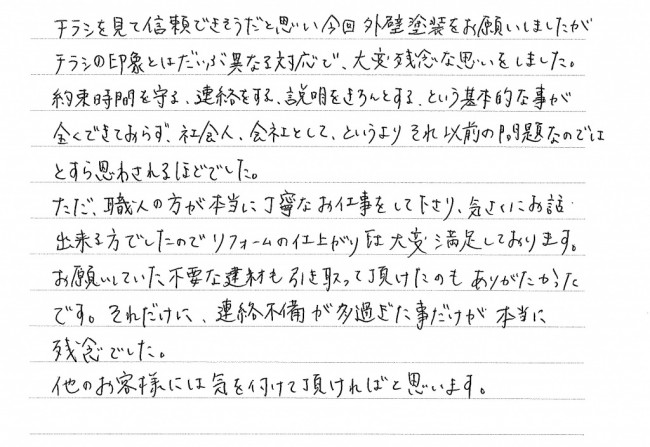 チラシを見て信頼できそうだと思い今回外壁塗装をお願いしましたが
チラシの印象とはだいぶ異なる対応で、大変残念な思いをしました。
約束時間を守る、連絡をする、説明をきちんとする、という基本的な事が
全くできておらず、社会人、会社として、というよりそれ以前の問題なのでは
とすら思わされるほどでした。
ただ、職人の方が本当に丁寧なお仕事をして下さり、気さくにお話
出来る方でしたのでリフォームの仕上がりは大変満足しております。
お願いしていた不要な建材も引き取って頂けたのもありがたかった
です。それだけに、連絡不備が多過ぎた事だけが本当に
残念でした。
他のお客様には気を付けて頂ければと思います。